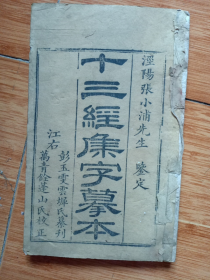 涇陽張小浦先生鑒定
十三經集字摹本
彭玉雯雲墀氏纂刊
江右
萬青銓蓬山氏校正